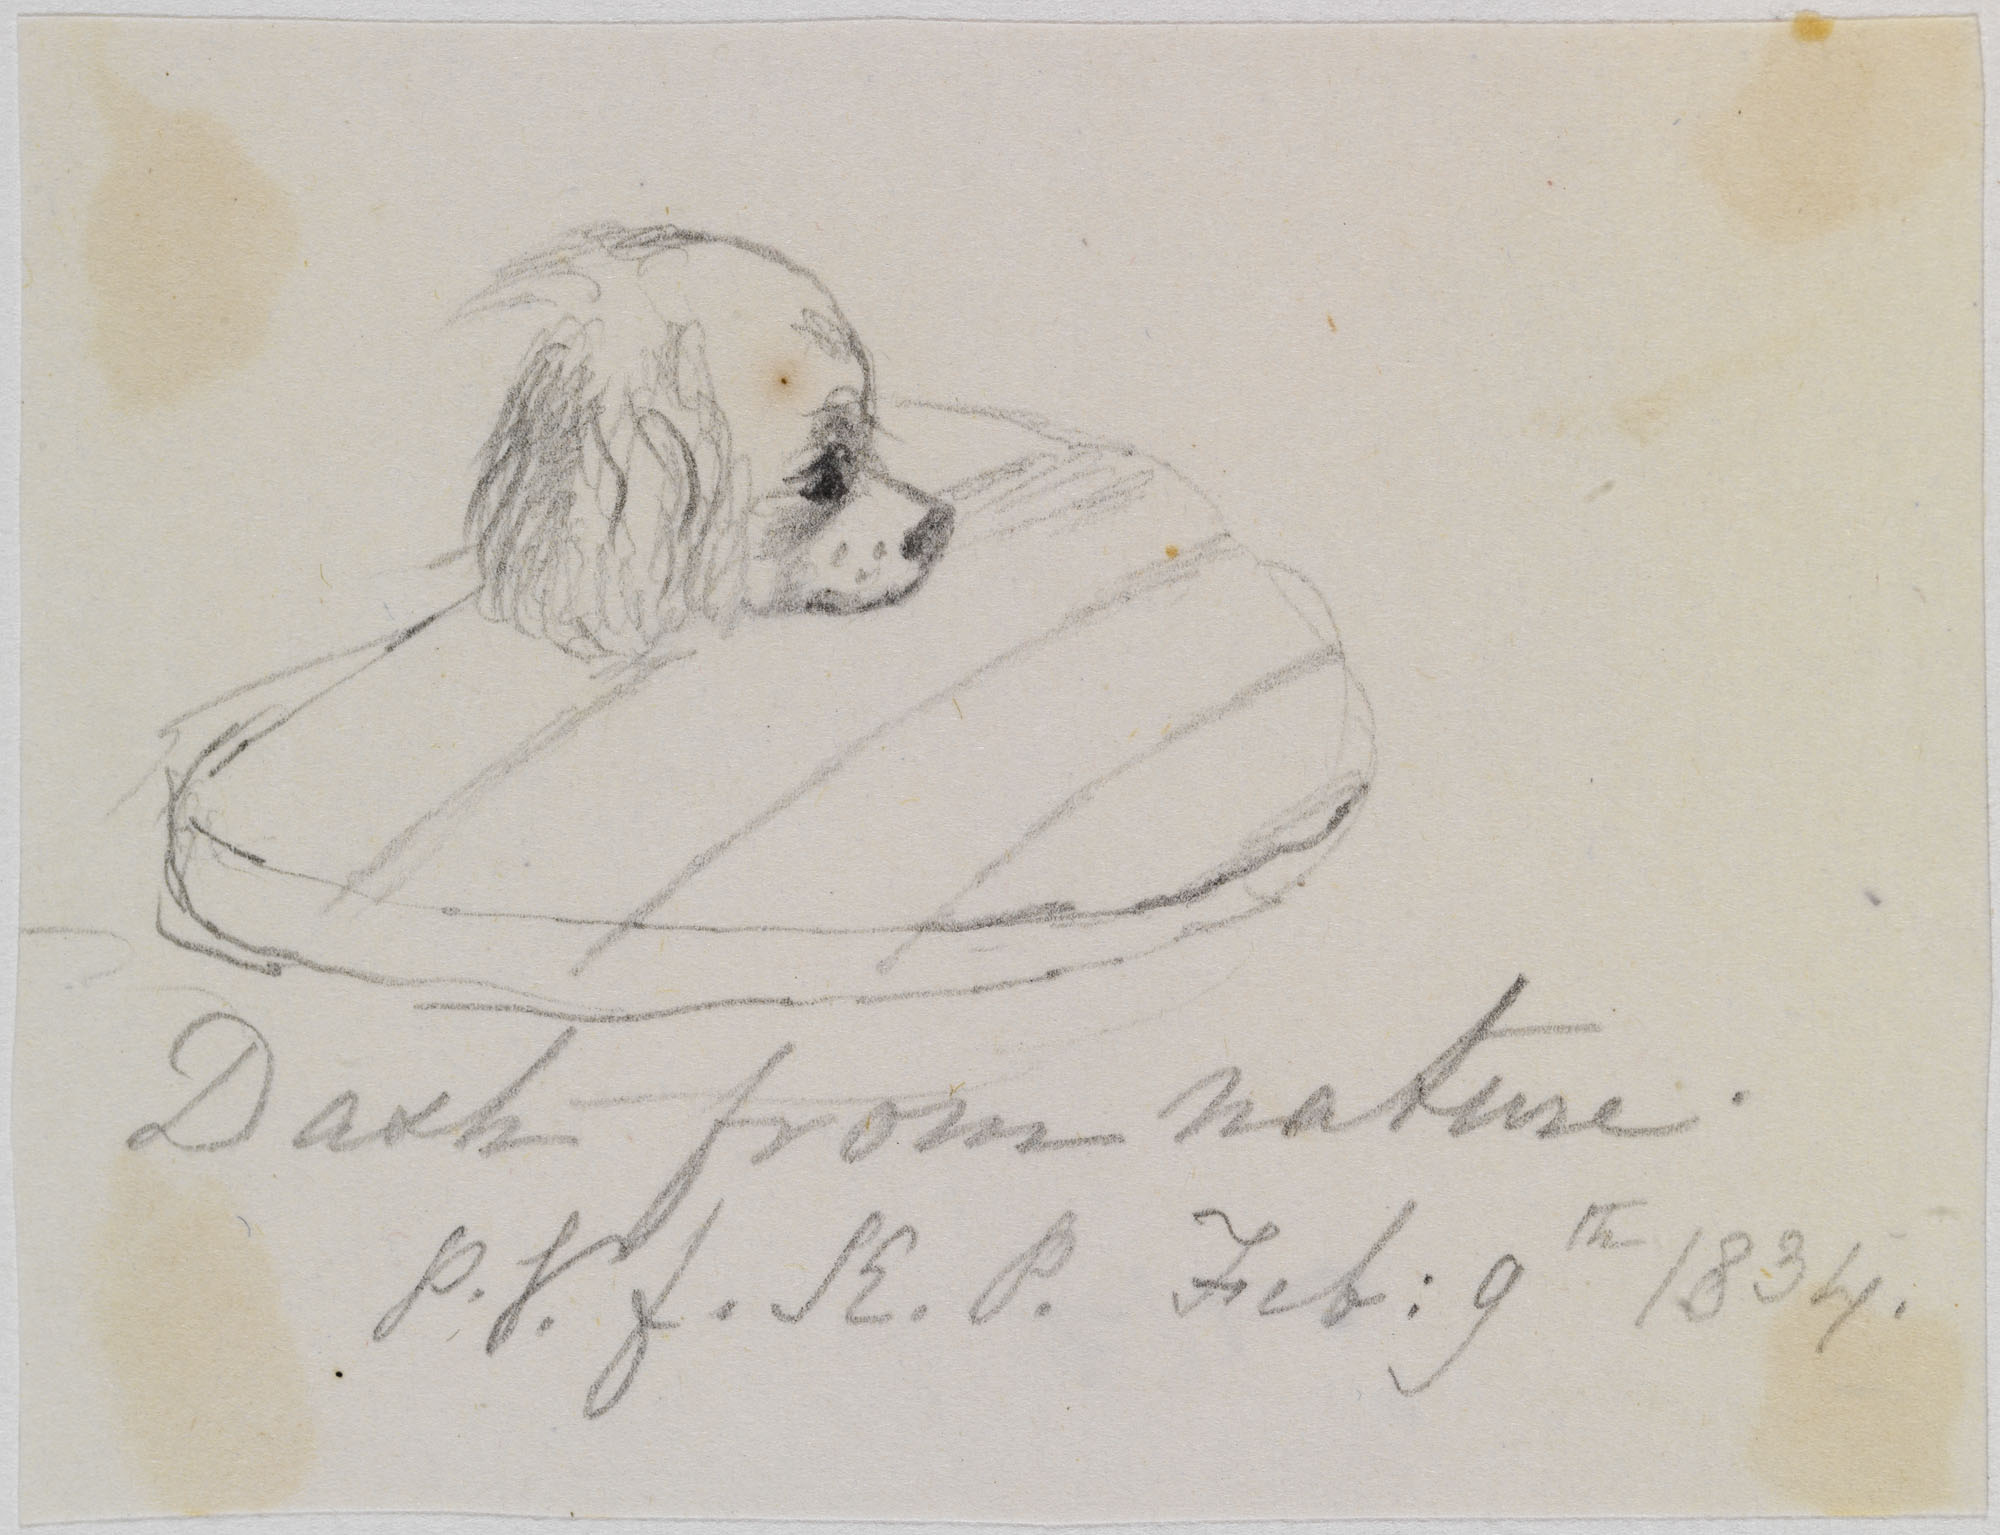 Dash from nature.
P.V. f. K.P. Feb: 9th 1834.